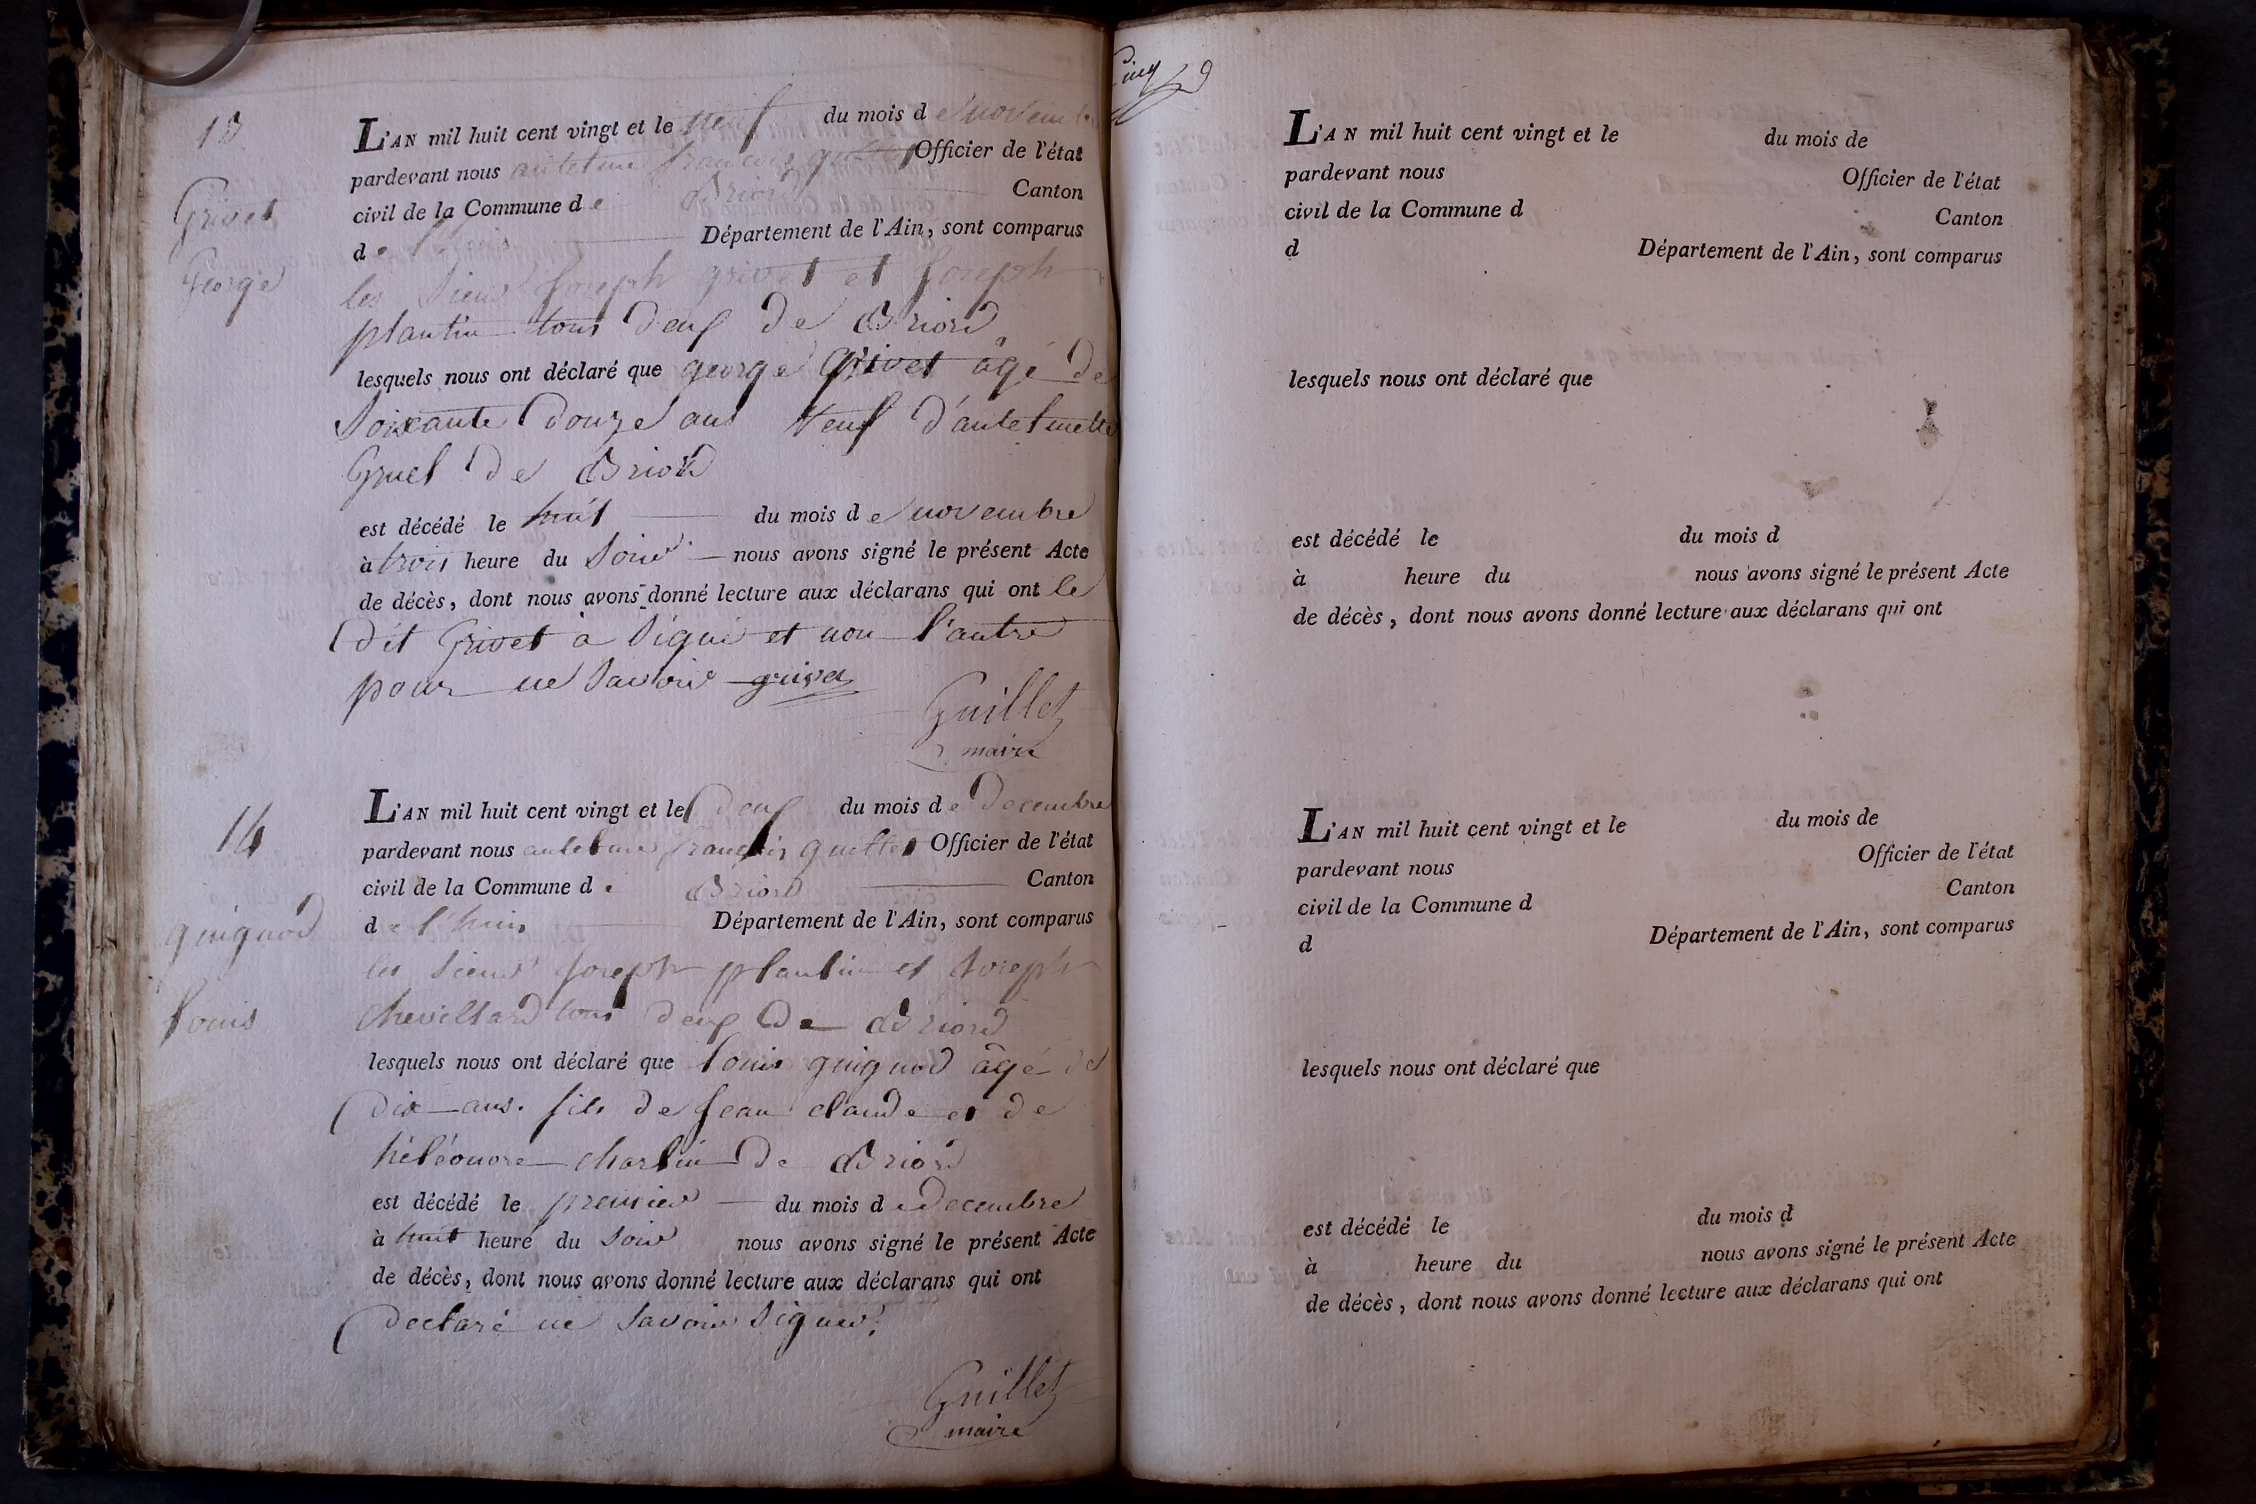 13
Grivet
George
L'AN mil huit cent vingt et le neuf du mois de novembre
pardevant nous antelme françois guillet Officier de l'état
civil de la Commune de Briord Canton
de l'huis Département de l'Ain, sont comparus
les sieur joseph grivet et joseph
plantin tous deux de Briord
lesquels nous ont déclaré que george Grivet âgé de
soixante douze ans veuf d'antelmette
Gruel de Briord
est décédé le huit du mois de novembre
à trois heure du soir nous avons signé le présent Acte
de décès, dont nous avons donné lecture aux déclarans qui ont le
dit Grivet à signé et non l'autre
pour ne savoir grivet
Guillet
maire
14
guignod
louis
L'AN mil huit cent vingt et le deux du mois de decembre
pardevant nous antelme françois guillet Officier de l'état
civil de la Commune de Briord Canton
de l'huis Département de l'Ain, sont comparus
les sieur joseph plantin et joseph
chevillard tous deux de Briord
lesquels nous ont déclaré que louis guignod âgé de
dix ans. fils de jean claude et de
héléonore charlin de Briord
est décédé le premier du mois de decembre
à huit heure du soir nous avons signé le présent Acte
de décès, dont nous avons donné lecture aux déclarans qui ont
declaré ne savoir signer.
Guillet
maire
L'AN mil huit cent vingt et le du mois de
pardevant nous Officier de l'état
civil de la Commune d Canton
d Département de l'Ain, sont comparus
lesquels nous ont déclaré que
est décédé le du mois d
à heure du nous avons signé le présent Acte
de décès, dont nous avons donné lecture aux déclarans qui ont
L'AN mil huit cent vingt et le du mois de
pardevant nous Officier de l'état
civil de la Commune d Canton
d Département de l'Ain, sont comparus
lesquels nous ont déclaré que
est décédé le du mois d
à heure du nous avons signé le présent Acte
de décès, dont nous avons donné lecture aux déclarans qui ont